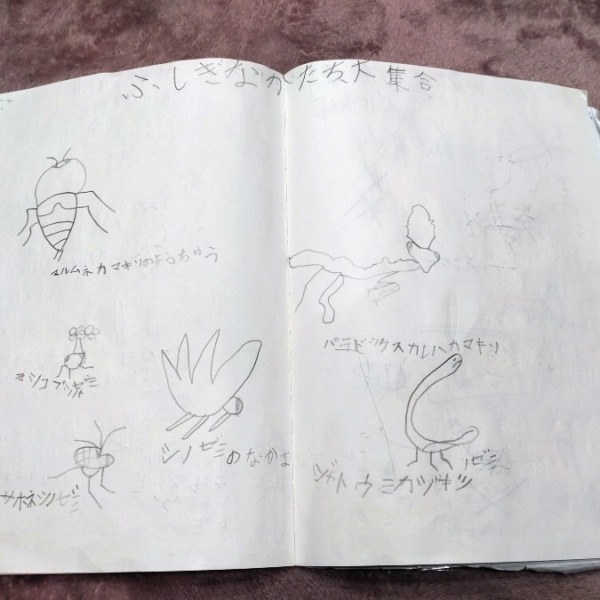 ふしぎなかたち大集合
マルムネカマキリのようちゅう
ヨツコブツノゼミ
ツノゼミのなかま
サカホネツノゼミ
パラドックスカレハカマキリ
ジャトウミカヅキツノゼミ